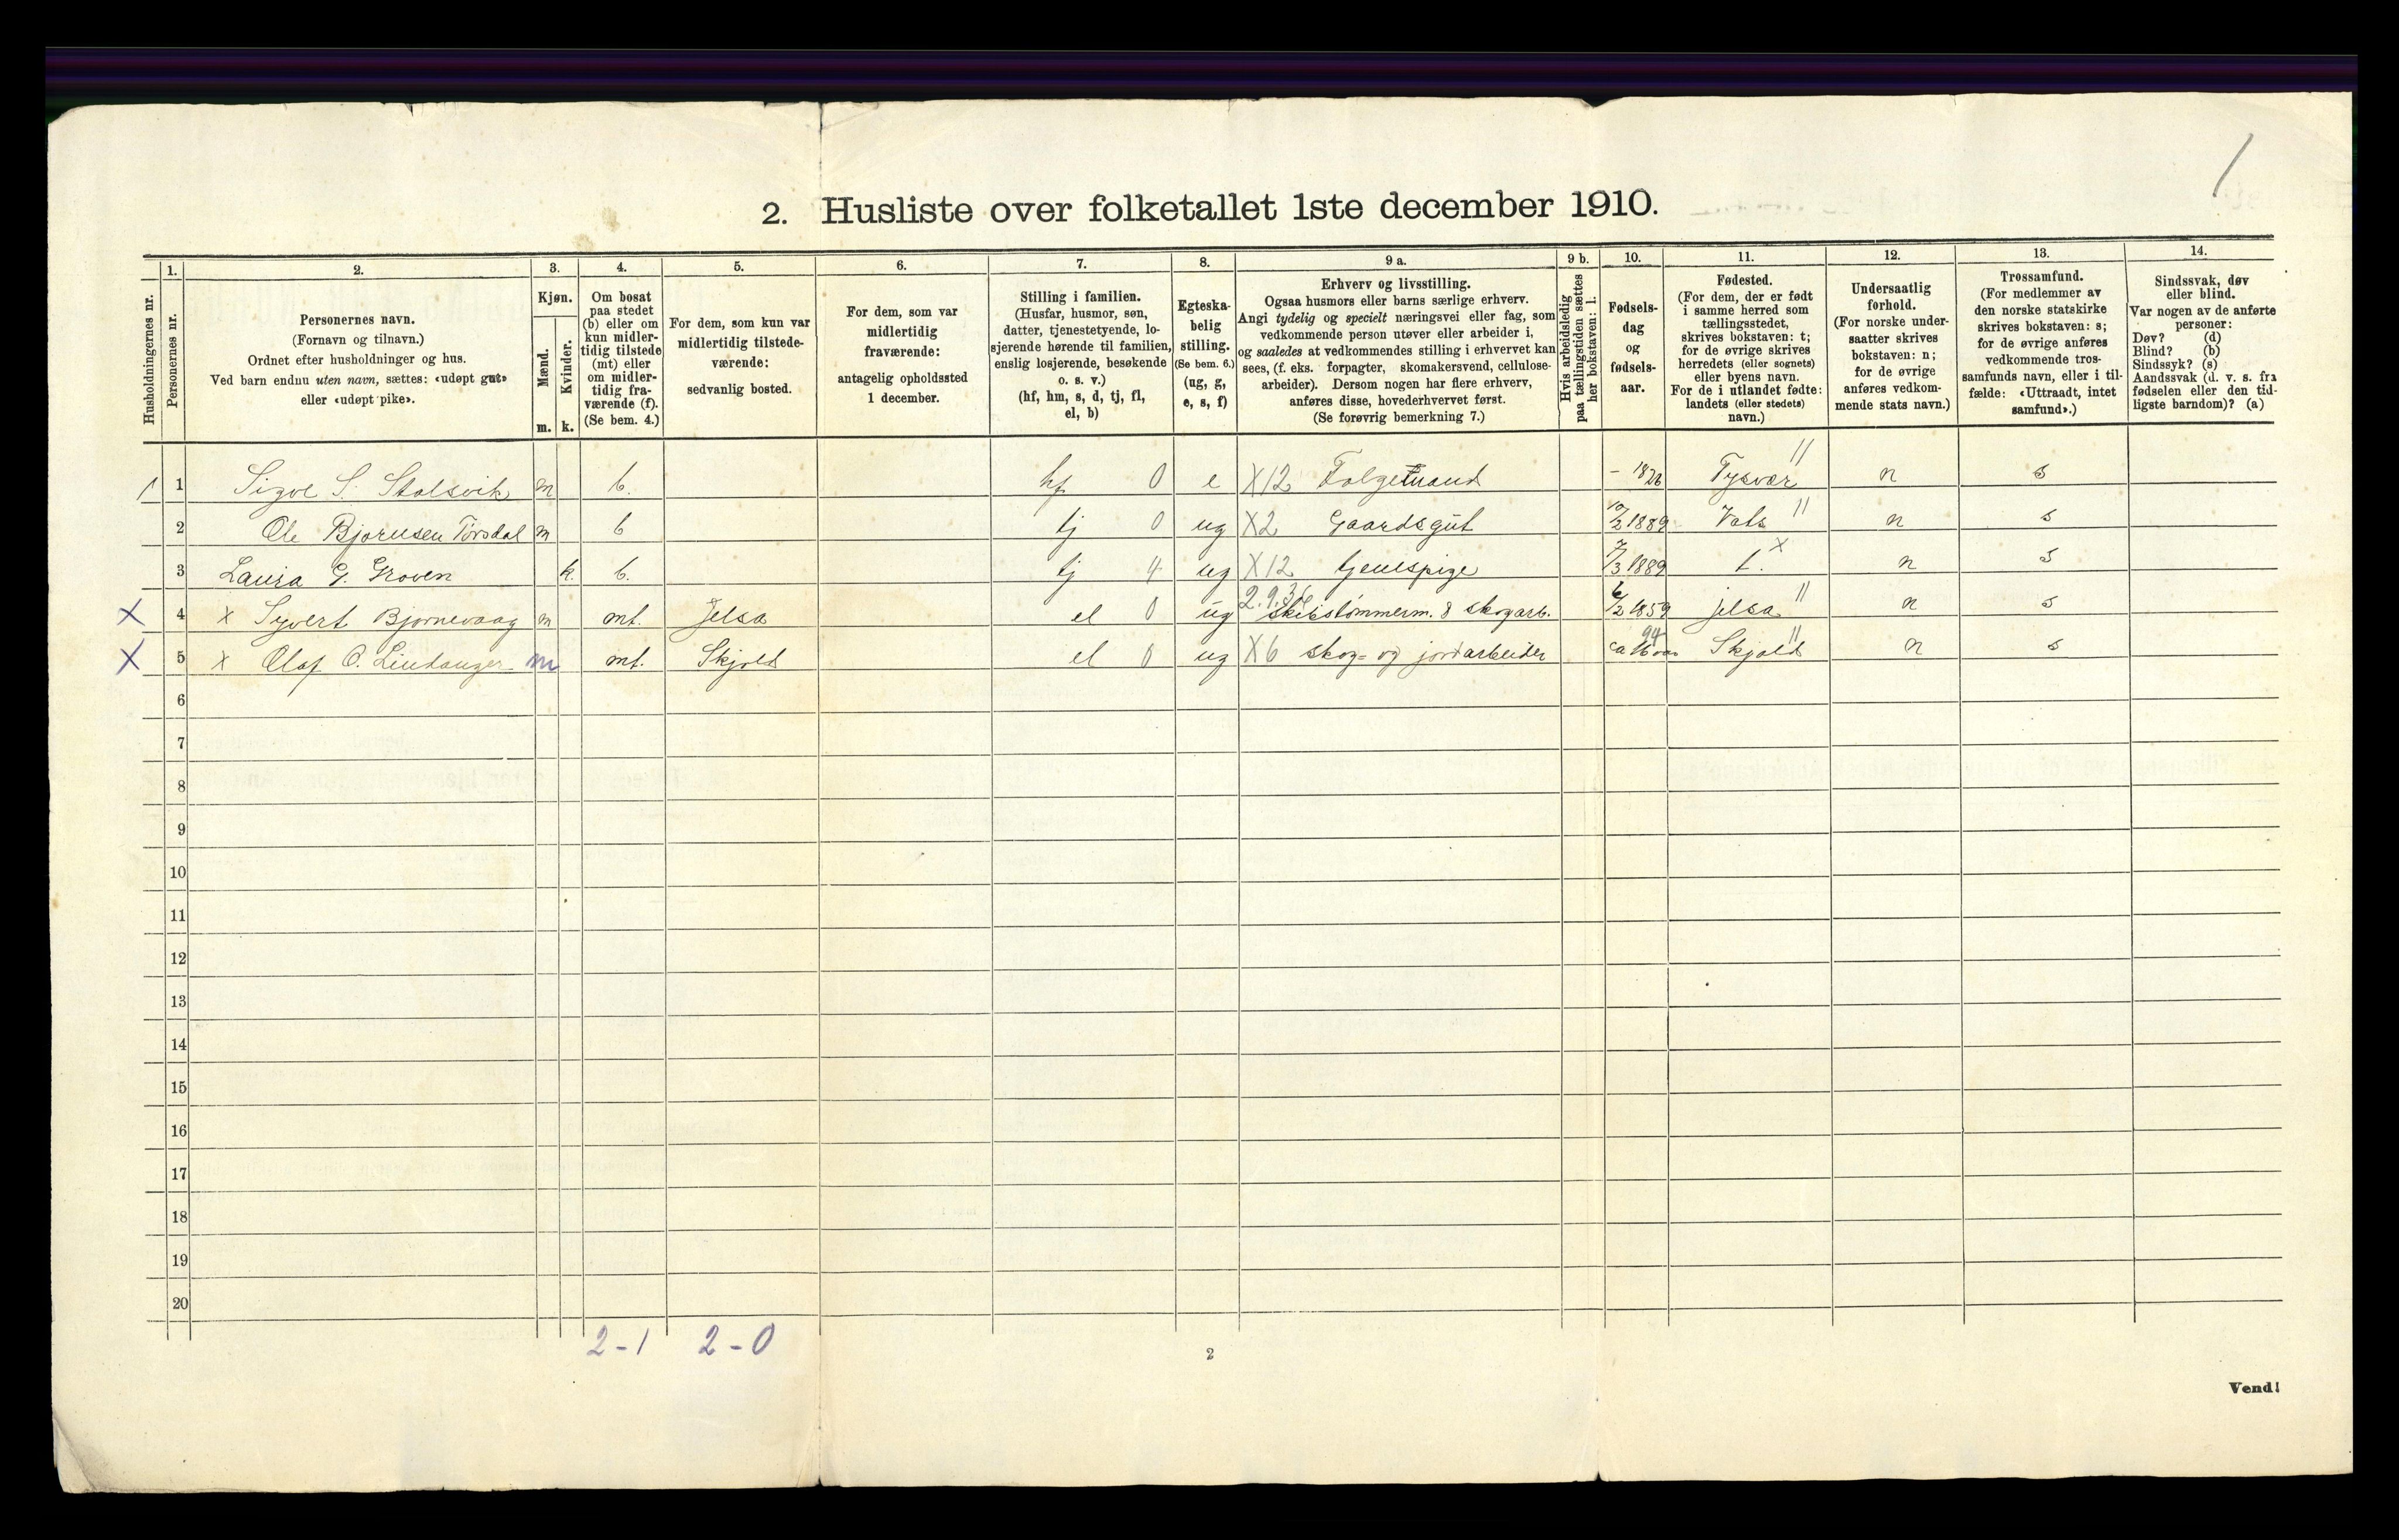 1
2. Husliste over folketallet 1ste december 1910.
Husholdningernes nr.
1.
Personernes nr.
2.
Personernes navn.
(Fornavn og tilnavn.)
Ordnet efter husholdninger og hus.
Ved barn endnu uten navn, sættes: «udøpt gut»
eller «udøpt pike».
3.
Kjøn.
Mænd.
Kvinder.
m. k.
4.
Om bosat
paa stedet
(b) eller om
kun midler-
tidig tilstede
(mt) eller
om midler-
tidig fra-
værende (f).
(Se bem. 4.)
5.
For dem, som kun var
midlertidig tilstede-
værende:
sedvanlig bosted.
6.
For dem, som var
midlertidig
fraværende:
antagelig opholdssted
1 december.
7.
Stilling i familien.
(Husfar, husmor, søn,
datter, tjenestetyende, lo-
sjerende hørende til familien,
enslig losjerende, besøkende
o. s. v.)
(hf, hm, s, d, tj, fl,
el, b)
8.
Egteska-
belig
stilling.
(Se bem. 6.)
(ug, g,
e, s, f)
9 a.
Erhverv og livsstilling.
Ogsaa husmors eller barns særlige erhverv.
Angi tydelig og specielt næringsvei eller fag, som
vedkommende person utøver eller arbeider i,
og saaledes at vedkommendes stilling i erhvervet kan
sees, (f. eks. forpagter, skomakersvend, cellulose-
arbeider). Dersom nogen har flere erhverv,
anføres disse, hovederhvervet først.
(Se forøvrig bemerkning 7.)
9 b.
Hvis arbeidsledig
paa tællingstiden sættes
her bokstaven: l.
10.
Fødsels-
dag
og
fødsels-
aar.
11.
Fødested.
(For dem, der er født
i samme herred som
tællingsstedet,
skrives bokstaven: t;
for de øvrige skrives
herredets (eller sognets)
eller byens navn.
For de i utlandet fødte:
landets (eller stedets)
navn.)
12.
Undersaatlig
forhold.
(For norske under-
saatter skrives
bokstaven: n;
for de øvrige
anføres vedkom-
mende stats navn.)
13.
Trossamfund.
(For medlemmer av
den norske statskirke
skrives bokstaven: s;
for de øvrige anføres
vedkommende tros-
samfunds navn, eller i til-
fælde: «Uttraadt, intet
samfund».)
14.
Sindssvak, døv
eller blind.
Var nogen av de anførte
personer:
Døv? (d)
Blind? (b)
Sindssyk? (s)
Aandssvak (d. v. s. fra
fødselen eller den tid-
ligste barndom)? (a)
1 1 Sigve S. Stolsvik m b. hf 0 e X12 Folgemand - 1826 Tysvær // n s
2 Ole Bjornsen Tørsdal m b tj 0 ug X2 Gaardsgut 10/2 1889 Vats // n s
3 Laura G. Groven k. b. tj 4 ug X12 tjenespige 7/3 1889 t. x n s
X 4 x Syvert Bjornevaag m mt. Jelsa el 0 ug skibstømmerm. & skogarb. 6/2 1859 jelsa // n s
X 5 x Olaf O. Lindanger m mt. Skjold el 0 ug X6 skog- og jordarbeider ca 16 aar 94 Skjold // n s
6
7
8
9
10
11
12
13
14
15
16
17
18
19
20
2-1 2-0
2
Vend!